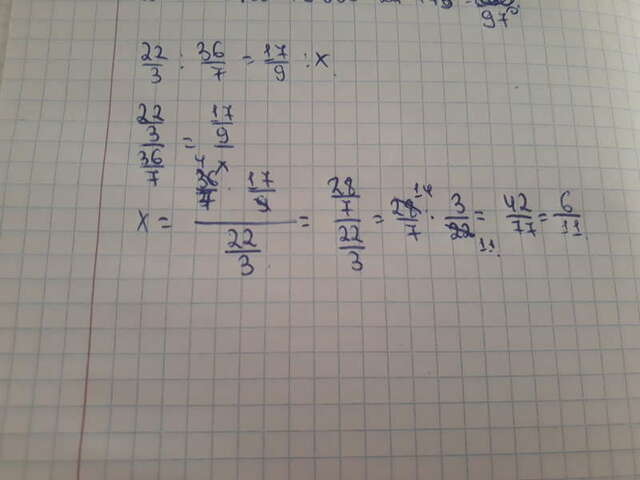 97
22/3 : 36/7 = 17/9 : x
22/3 / 36/7 = 17/9 / x
x = 36/7 · 17/9 / 22/3 = 28/7 / 22/3 = 28/7 · 3/22 = 42/77 = 6/11
4 14 11